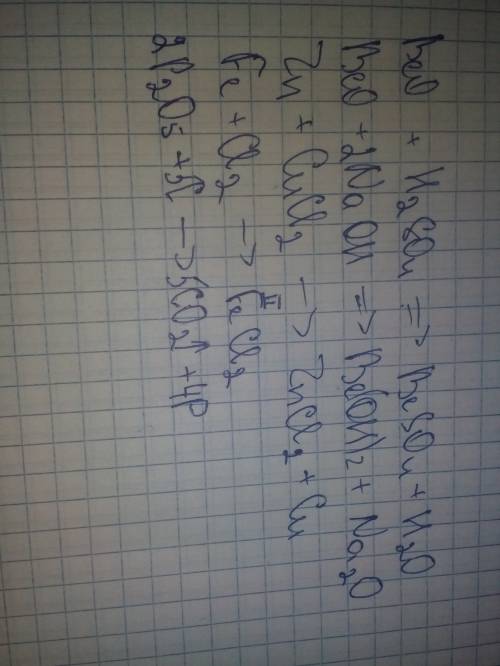 BeO + H₂SO₄ => BeSO₄ + H₂O
BeO + 2NaOH => Be(OH)₂ + Na₂O
Zn + CuCl₂ → ZnCl₂ + Cu
Fe + Cl₂ → Feᴵᴵ Cl₂
2P₂O₅ + 5C → 5CO₂↑ + 4P